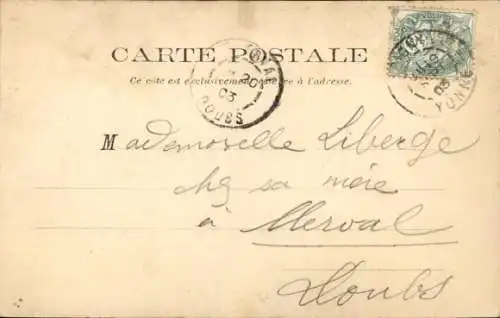 CARTE POSTALE
Ce côté est exclusivement réservé à l'adresse.
DOUBS
03
YONNE
Mademoiselle Liberge
chez sa mère
à Merval
Doubs